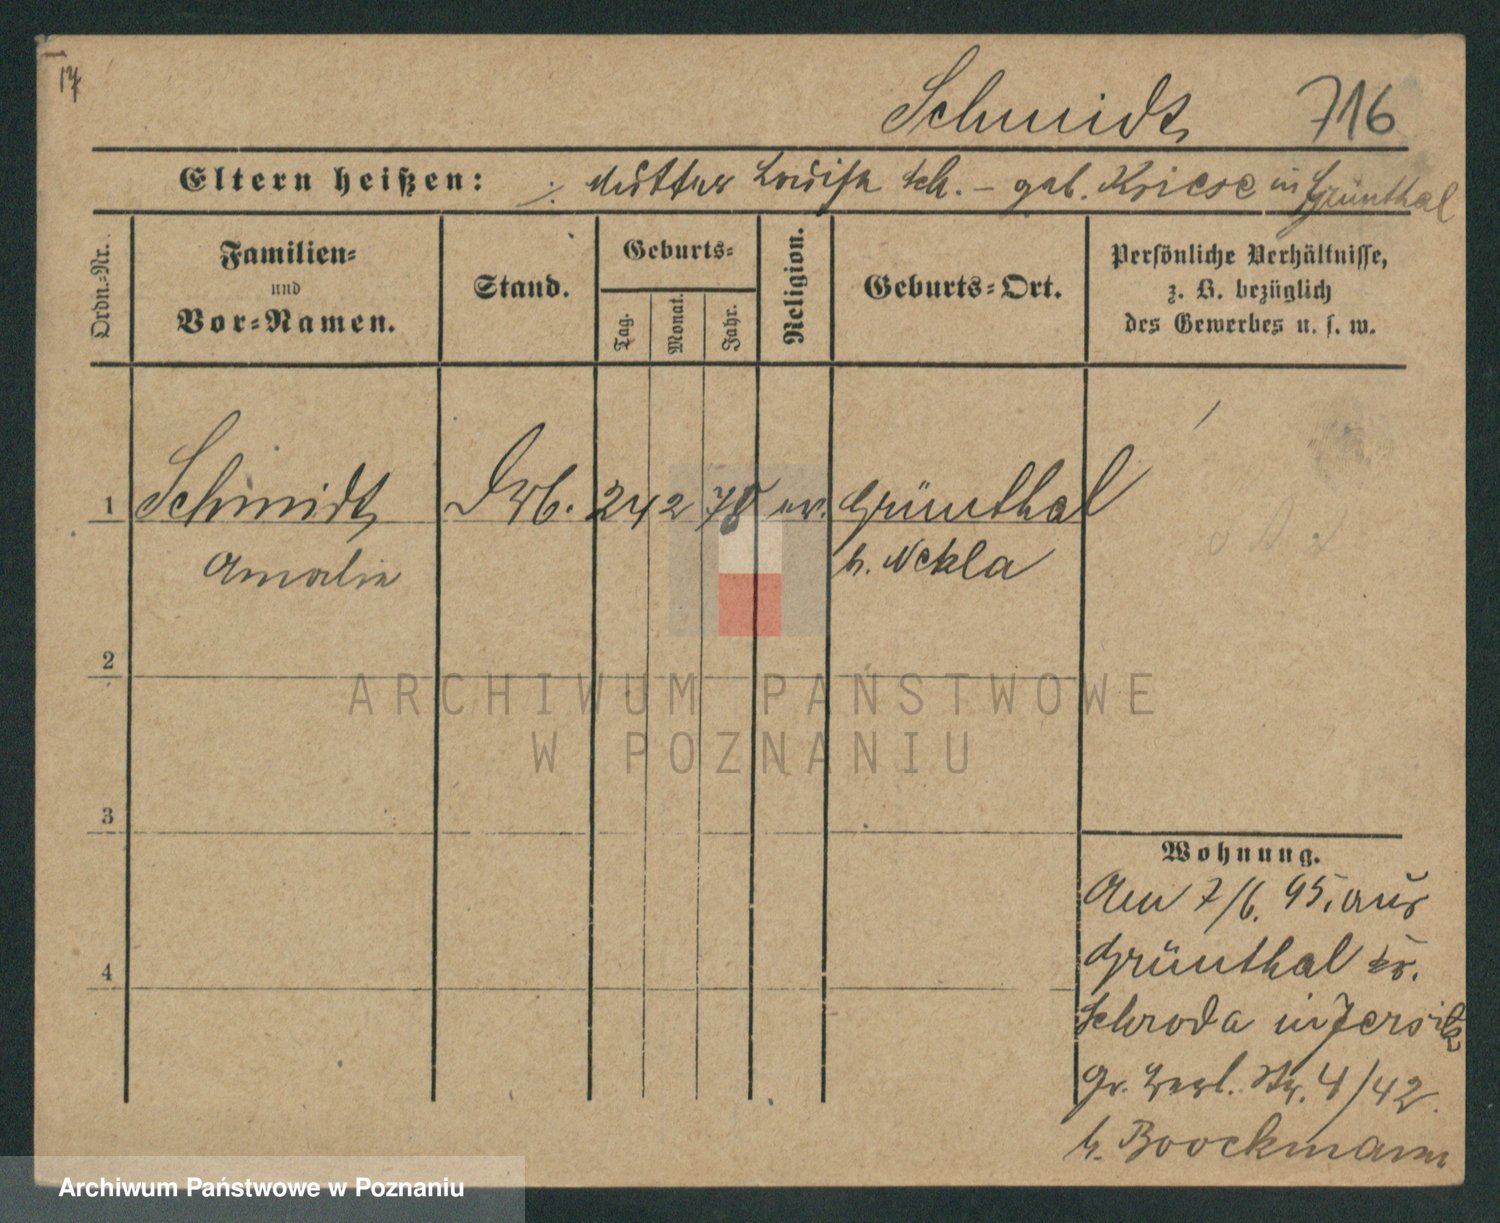 17
Schmidt 716
Eltern heißen: ./. Mutter Louise Sch. – geb. Kriese in Grünthal
Ordn.-Nr.
Familien-
und
Vor-Namen.
Stand.
Geburts-
Tag.
Monat.
Jahr.
Religion.
Geburts-Ort.
Persönliche Verhältnisse,
z. B. bezüglich
des Gewerbes u. s. w.
1 Schmidt Drb. 24 2 78 ev. Grünthal
Amalie b. Nekla
2
3
4
ARCHIWUM PAŃSTWOWE
W POZNANIU
Wohnung.
Am 7/6. 95. aus
Grünthal Kr.
Schroda in Jersitz
Gr. Berl. Str. 4/42.
b. Boockmann
Archiwum Państwowe w Poznaniu